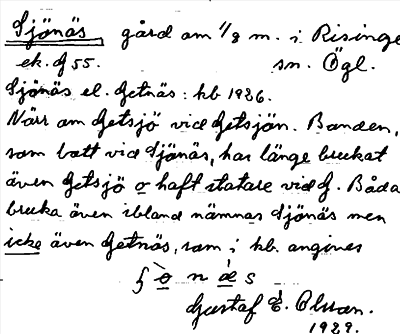 Sjönäs gård om 1/8 m. i Risinge
ek. g 55. sn. Ögl.
Sjönäs el. Getnäs: kb 1926.
Norr om Getsjö vid Getsjön. Bonden,
som bott vid Sjönäs, har länge brukat
även Getsjö o haft statare vid G. Båda
bruka även ibland nämnas Sjönäs men
icke även Getnäs, som i kb. angives
Gustaf E. Olsson.
1929.